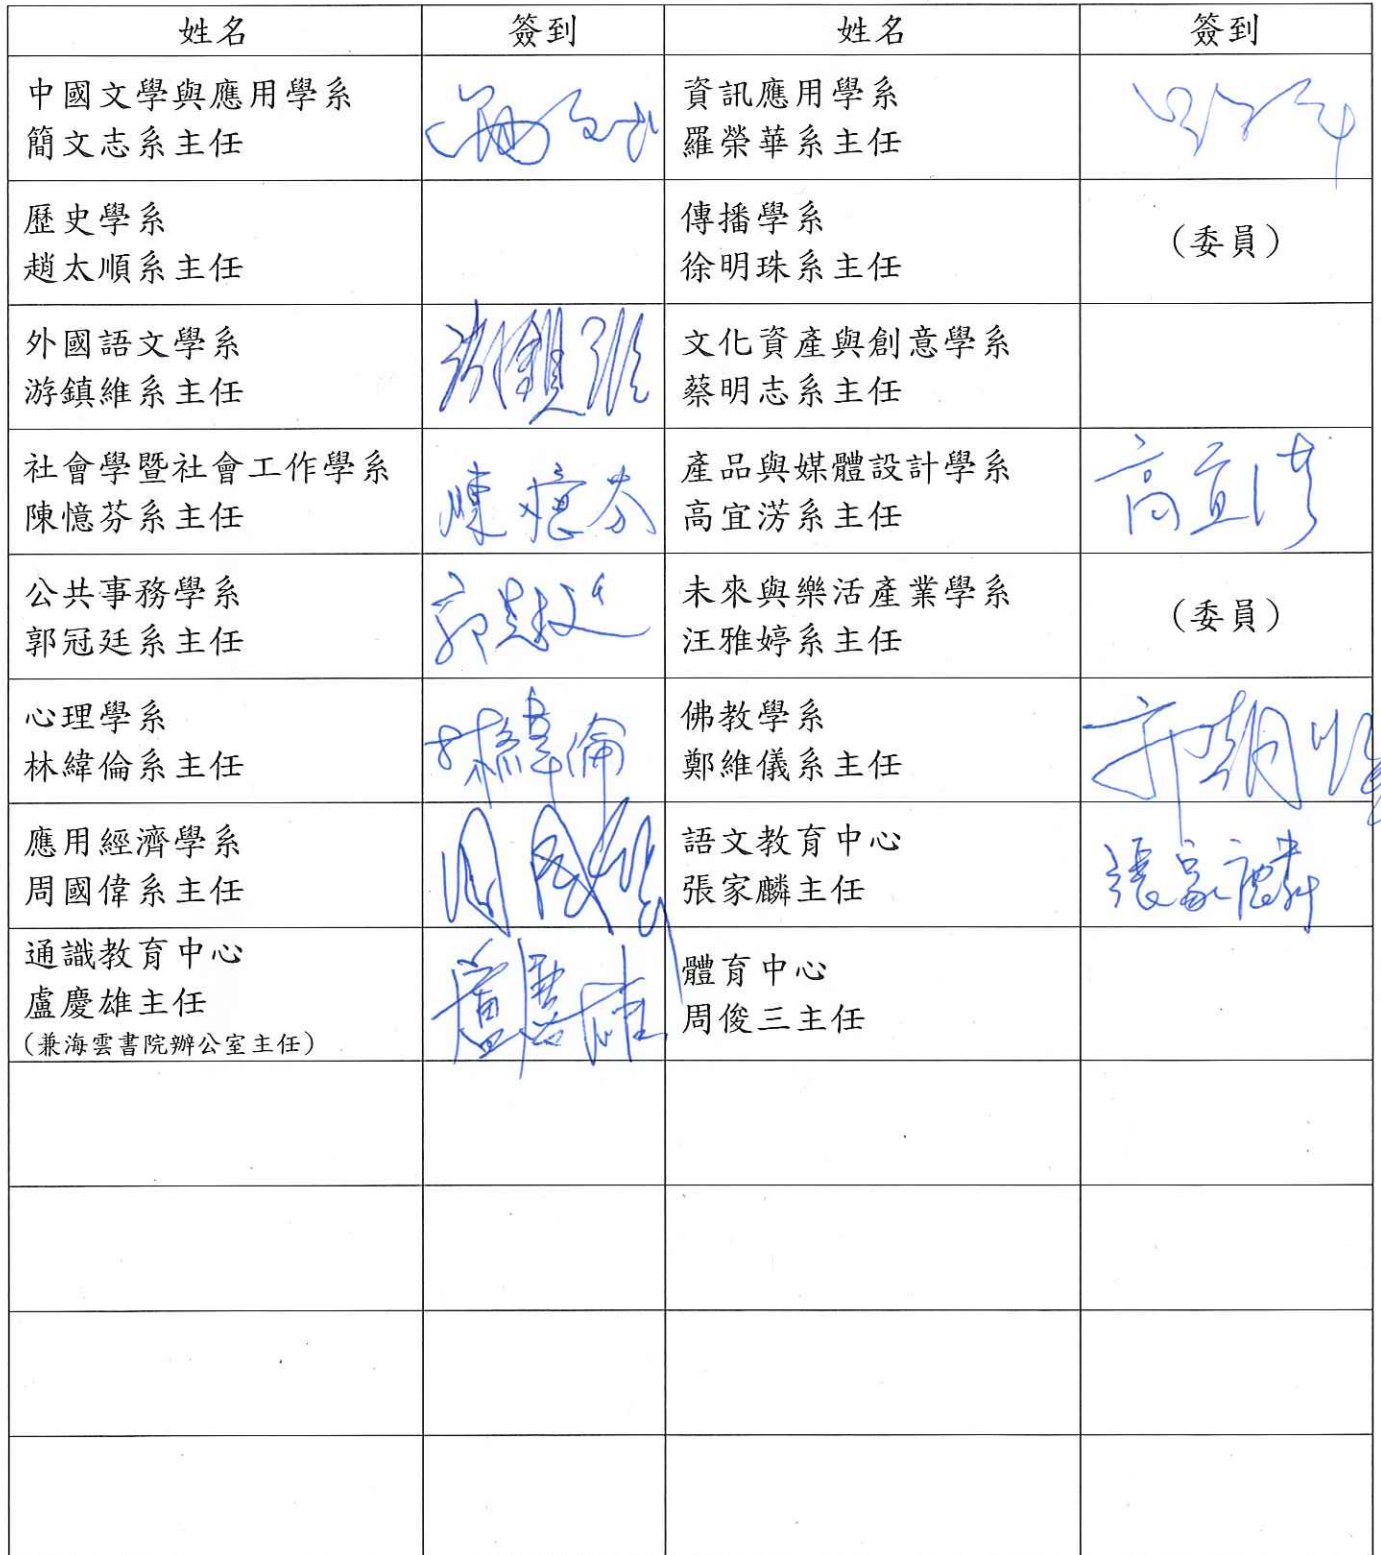 姓名 簽到 姓名 簽到
中國文學與應用學系
簡文志系主任
資訊應用學系
羅榮華系主任
歷史學系
趙太順系主任
傳播學系
徐明珠系主任
(委員)
外國語文學系
游鎮維系主任
游鎮維
文化資產與創意學系
蔡明志系主任
社會學暨社會工作學系
陳憶芬系主任
陳憶芬
產品與媒體設計學系
高宜淓系主任
高宜淓
公共事務學系
郭冠廷系主任
未來與樂活產業學系
汪雅婷系主任
(委員)
心理學系
林緯倫系主任
林緯倫
佛教學系
鄭維儀系主任
應用經濟學系
周國偉系主任
周國偉
語文教育中心
張家麟主任
張家麟
通識教育中心
盧慶雄主任
(兼海雲書院辦公室主任)
盧慶雄
體育中心
周俊三主任